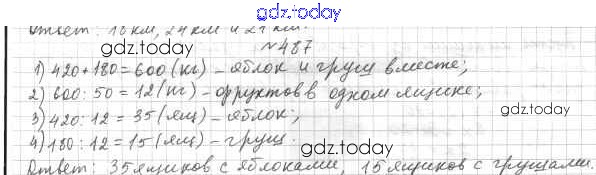 gdz.today
Ответ: 18 км, 24 км и 27 км.
gdz.today
№487
1) 420+180=600(кг) – яблок и груш вместе;
2) 600:50=12(кг) – фруктов в одном ящике;
3) 420:12=35(ящ) – яблок;
4) 180:12=15(ящ) – груш.
gdz.today
gdz.today
Ответ: 35 ящиков с яблоками, 15 ящиков с грушами.